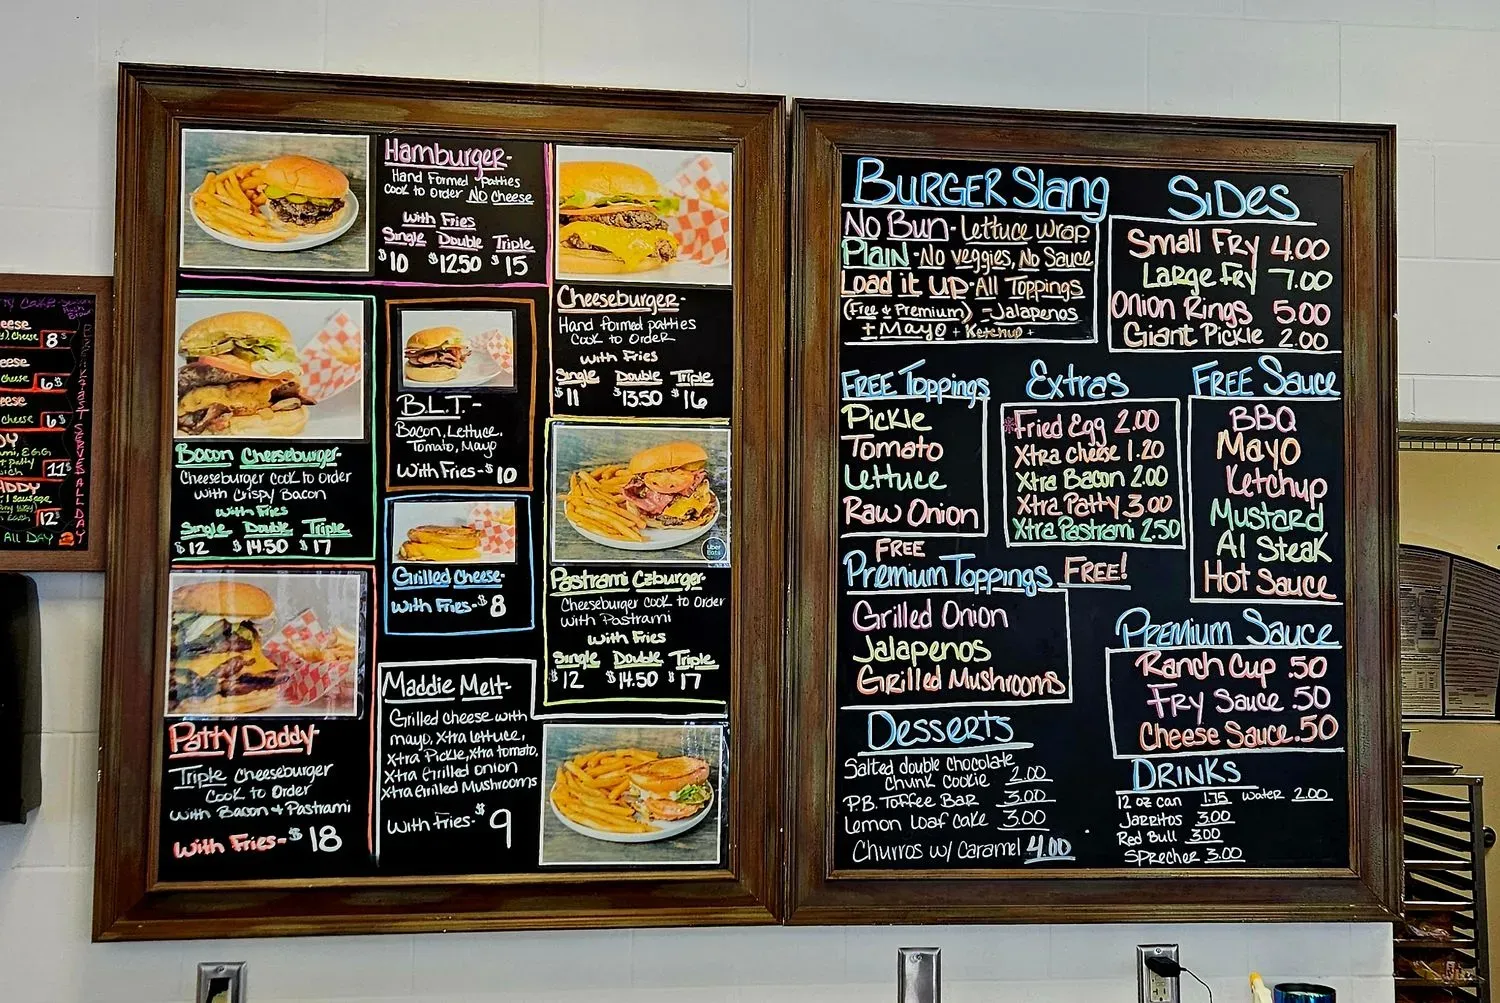 eese
), cheese 8⁵
eese
cheese 6⁵
cheese 6⁵
DY
mi, EGG
t Patty
ich 11⁵
DDY
12⁵
ALL DAY
BREAKFAST SERVED ALL DAY
Hamburger-
Hand Formed patties
Cook to Order No Cheese
With Fries
Single Double Triple
$10 $12.50 $15
Cheeseburger-
Hand formed patties
Cook to Order
With Fries
Single Double Triple
$11 $13.50 $16
Bacon Cheeseburger-
Cheeseburger Cook to Order
With Crispy Bacon
With Fries
Single Double Triple
$12 $14.50 $17
B.L.T.-
Bacon, Lettuce,
Tomato, Mayo
With Fries-$10
Grilled Cheese-
With Fries-$8
Uber
Eats
Pastrami Czburger-
Cheeseburger Cook to Order
With Pastrami
With Fries
Single Double Triple
$12 $14.50 $17
Patty Daddy-
Triple Cheeseburger
Cook to Order
With Bacon + Pastrami
With Fries-$18
Maddie Melt-
Grilled cheese with
mayo, Xtra lettuce,
Xtra Pickle, Xtra tomato,
Xtra Grilled Onion
Xtra Grilled Mushrooms
With Fries-$9
Burger Slang
No Bun-Lettuce Wrap
Plain-No Veggies, No Sauce
Load it Up-All Toppings
(Free & Premium) -Jalapenos
+ Mayo + Ketchup +
Sides
Small Fry 4.00
Large Fry 7.00
Onion Rings 5.00
Giant Pickle 2.00
FREE Toppings
Pickle
Tomato
Lettuce
Raw Onion
Extras
*Fried Egg 2.00
Xtra cheese 1.20
Xtra Bacon 2.00
Xtra Patty 3.00
Xtra Pastrami 2.50
FREE Sauce
BBQ
Mayo
Ketchup
Mustard
A1 Steak
Hot Sauce
FREE
Premium Toppings FREE!
Grilled Onion
Jalapenos
Grilled Mushrooms
Premium Sauce
Ranch Cup .50
Fry Sauce .50
Cheese Sauce .50
Desserts
Salted double chocolate
chunk cookie 2.00
P.B. Toffee Bar 3.00
Lemon Loaf Cake 3.00
Churros w/ Caramel 4.00
Drinks
12 oz can 1.75 Water 2.00
Jarritos 3.00
Red Bull 3.00
Sprecher 3.00